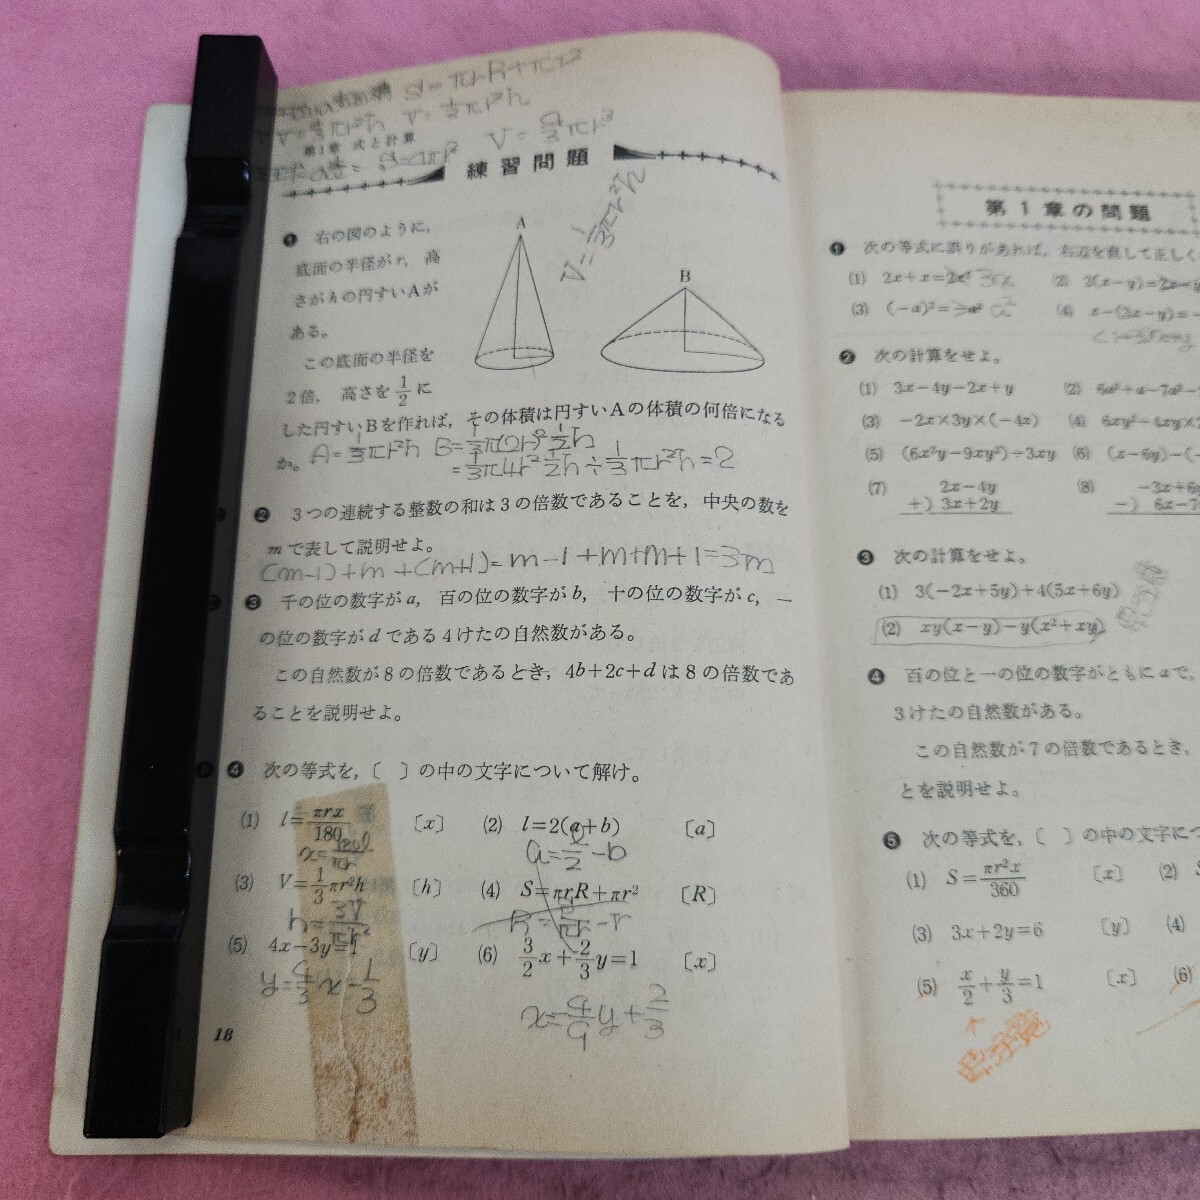 S=πrR+πr²
V=1/3πr²h
第1章 式と計算
練習問題
V=1/3πr²h
❶ 右の図のように,
底面の半径がr, 高
さがhの円すいAが
ある。
この底面の半径を
2倍, 高さを1/2に
した円すいBを作れば, その体積は円すいAの体積の何倍になる
か。
A
B
A=1/3πr²h B=1/3π(2r)²1/2h
=1/3π4r²1/2h÷1/3πr²h=2
❷ 3つの連続する整数の和は3の倍数であることを, 中央の数を
mで表して説明せよ。
(m-1)+m+(m+1)=m-1+m+m+1=3m
❸ 千の位の数字がa, 百の位の数字がb, 十の位の数字がc, 一
の位の数字がdである4けたの自然数がある。
この自然数が8の倍数であるとき, 4b+2c+dは8の倍数であ
ることを説明せよ。
❹ 次の等式を,〔 〕の中の文字について解け。
(1) l=πrx/180 〔x〕 (2) l=2(a+b) 〔a〕
x=180l/πr
(3) V=1/3πr²h 〔h〕 (4) S=πrR+πr² 〔R〕
h=3V/πr²
(5) 4x-3y=1 〔y〕 (6) 3/2x+2/3y=1 〔x〕
18
第1章の問題
❶ 次の等式に誤りがあれば, 右辺を直して正しく
(1) 2x+x=2x² 3x (2) 2(x-y)=2x-y
(3) (-a)²=-a² a² (4) x-(2x-y)=-
❷ 次の計算をせよ。
(1) 3x-4y-2x+y (2) 6a²+a-7a²-
(3) -2x×3y×(-4x) (4) 6xy²÷4xy×
(5) (6x²y-9xy²)÷3xy (6) (x-6y)-(-
(7) 2x-4y
+) 3x+2y
(8) -3x+6y
-) 6x-7
❸ 次の計算をせよ。
(1) 3(-2x+5y)+4(5x+6y)
(2) xy(x-y)-y(x²+xy)
❹ 百の位と一の位の数字がともにaで,
3けたの自然数がある。
この自然数が7の倍数であるとき,
とを説明せよ。
❺ 次の等式を,〔 〕の中の文字につ
(1) S=πr²x/360 〔x〕 (2) S
(3) 3x+2y=6 〔y〕 (4)
(5) x/2+y/3=1 〔x〕 (6)